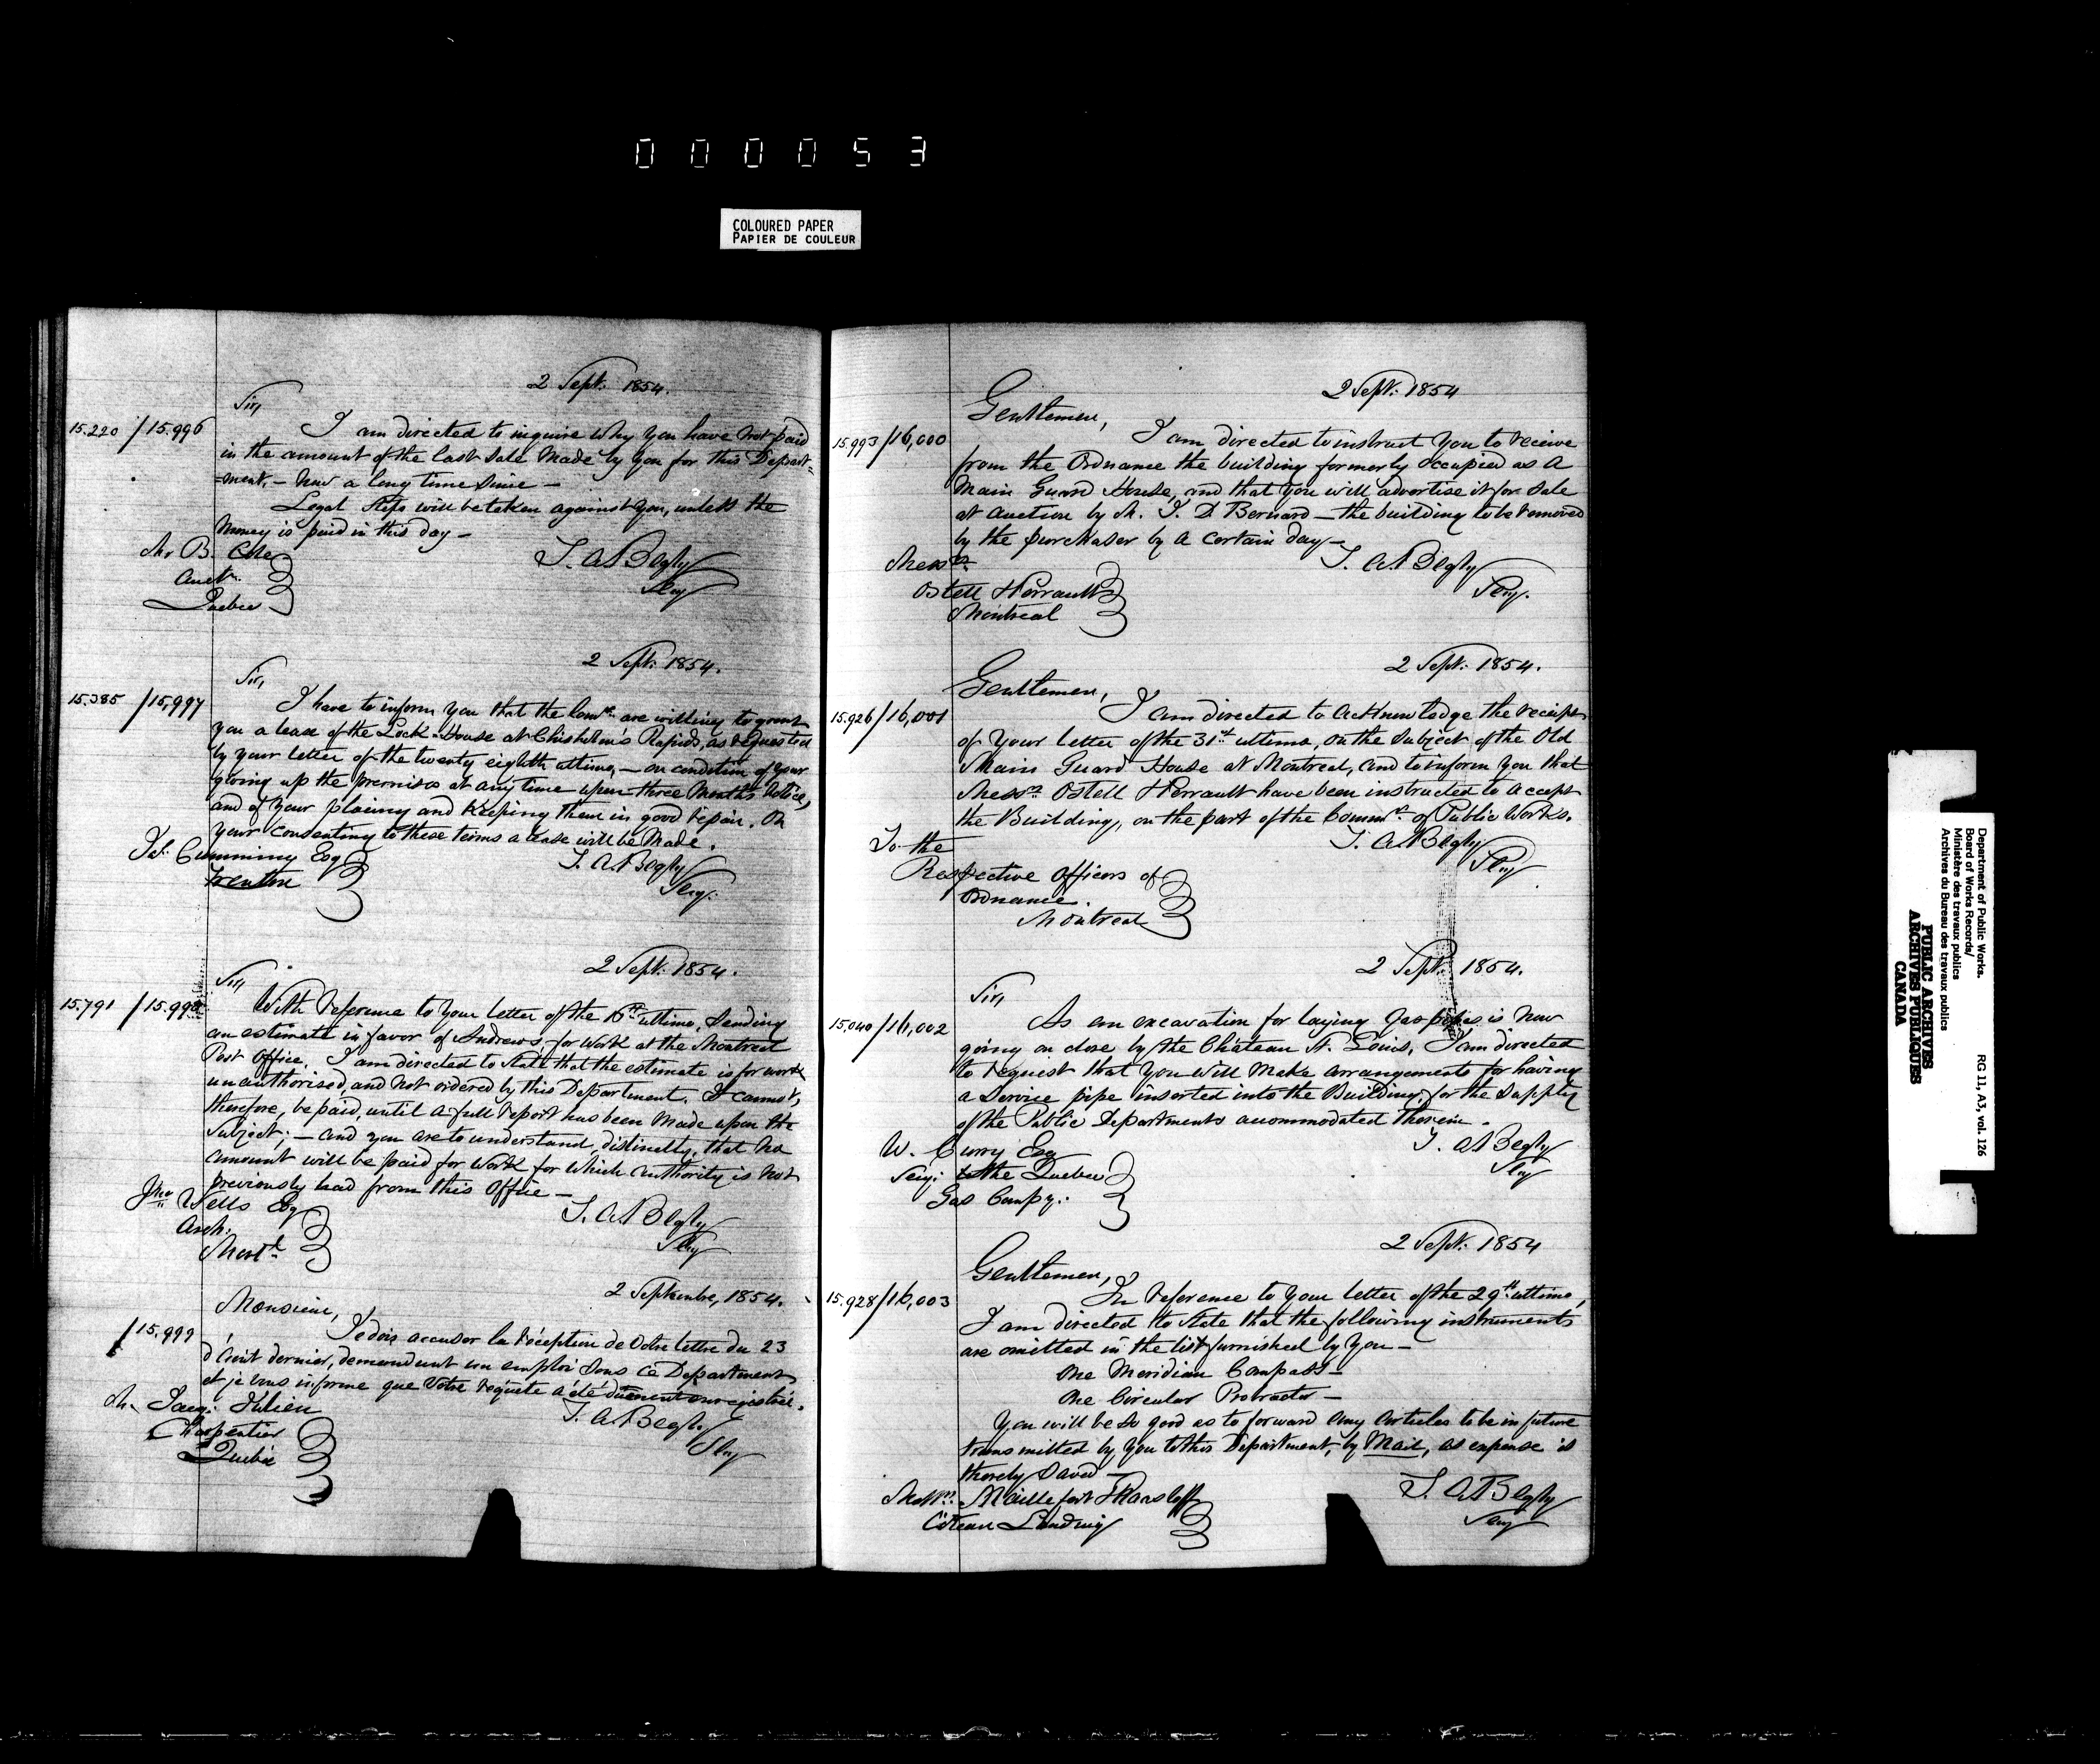 000053
COLOURED PAPER
PAPIER DE COULEUR
2 Sept: 1854.
Sir,
15.220 / 15.996
I am directed to inquire why you have not paid
in the amount of the last sale made by you for this Depart=
=ment, - now a long time since -
Legal steps will be taken against you, unless the
money is paid in this day -
Mr B. Cole
Auctr.
Quebec
T. A. Begly
Secy
2 Sept: 1854.
Sir,
15.385 / 15,997
I have to inform you that the Comrs. are willing to grant
you a lease of the Lock-House at Chisholm's Rapids, as requested
by your letter of the twenty eighth ultimo, - on condition of your
giving up the premises at any time upon three months notice,
and of your placing and keeping them in good repair. On
your consenting to these terms a lease will be made.
Jas. Cumming Esq
Trenton
T. A. Begly
Secy.
2 Sept: 1854.
Sir,
15.791 / 15.998
With reference to your letter of the ultimo, sending
an estimate in favor of Andrews, for work at the Montreal
Post Office, I am directed to state that the estimate is for work
unauthorised, and not ordered by this Department. It cannot,
therefore, be paid, until a full report has been made upon the
subject; - and you are to understand, distinctly, that no
amount will be paid for work for which authority is not
previously had from this Office -
Jno Wells Esq
Arch:
Montl.
T. A. Begly
Secy
2 Septembre, 1854.
Monsieur,
/ 15.999
Je dois accuser la réception de votre lettre du 23
d'Août dernier, demandant un emploi sous ce Department
et je vous informe que votre requète a été duement enregistrée.
M. Jacq: Julien
Charpentier
Quebéc
T. A. Begly
Secy
2 Sept: 1854
Gentlemen,
15.993 / 16,000
I am directed to instruct you to receive
from the Ordnance the building formerly occupied as a
Main Guard House, and that you will advertise it for sale
at auction by M. J. D Bernard - the building to be removed
by the purchaser by a certain day -
Messrs
Ostell & Perrault
Montreal
T. A. Begly
Secy.
2 Sept: 1854.
Gentlemen,
15.926 / 16,001
I am directed to acknowledge the receipt
of your letter of the 31st ultimo, on the subject of the Old
Main Guard House at Montreal, and to inform you that
Messrs Ostell & Perrault have been instructed to accept
the Building, on the part of the Commrs of Public Works.
To the
Respective Officers of
Ordnance.
Montreal
T. A. Begly
Secy
2 Sept: 1854.
Sir,
15,040 / 16,002
As an excavation for laying Gas pipes is now
going on close by the Château St. Louis, I am directed
to request that you will make arrangements for having
a service pipe inserted into the Building, for the supply
of the Public Departments accommodated therein.
W. Curry Esq
Secy: to the Quebec
Gas Compy:
T. A. Begly
Secy
2 Sept: 1854
Gentlemen,
15.928 / 16,003
In reference to your letter of the 29th ultimo,
I am directed to state that the following instruments
are omitted in the list furnished by you -
One Meridian Compass -
One Circular Protractor -
You will be so good as to forward any articles to be in future
transmitted by you to this Department, by Mail, as expense is
thereby saved -
Messrs. Maillefert &
Côteau Landing
T. A. Begly
Secy
Department of Public Works.
Board of Works Records/
Ministère des travaux publics
Archives du Bureau des travaux publics
RG 11, A3, vol. 126
PUBLIC ARCHIVES
ARCHIVES PUBLIQUES
CANADA